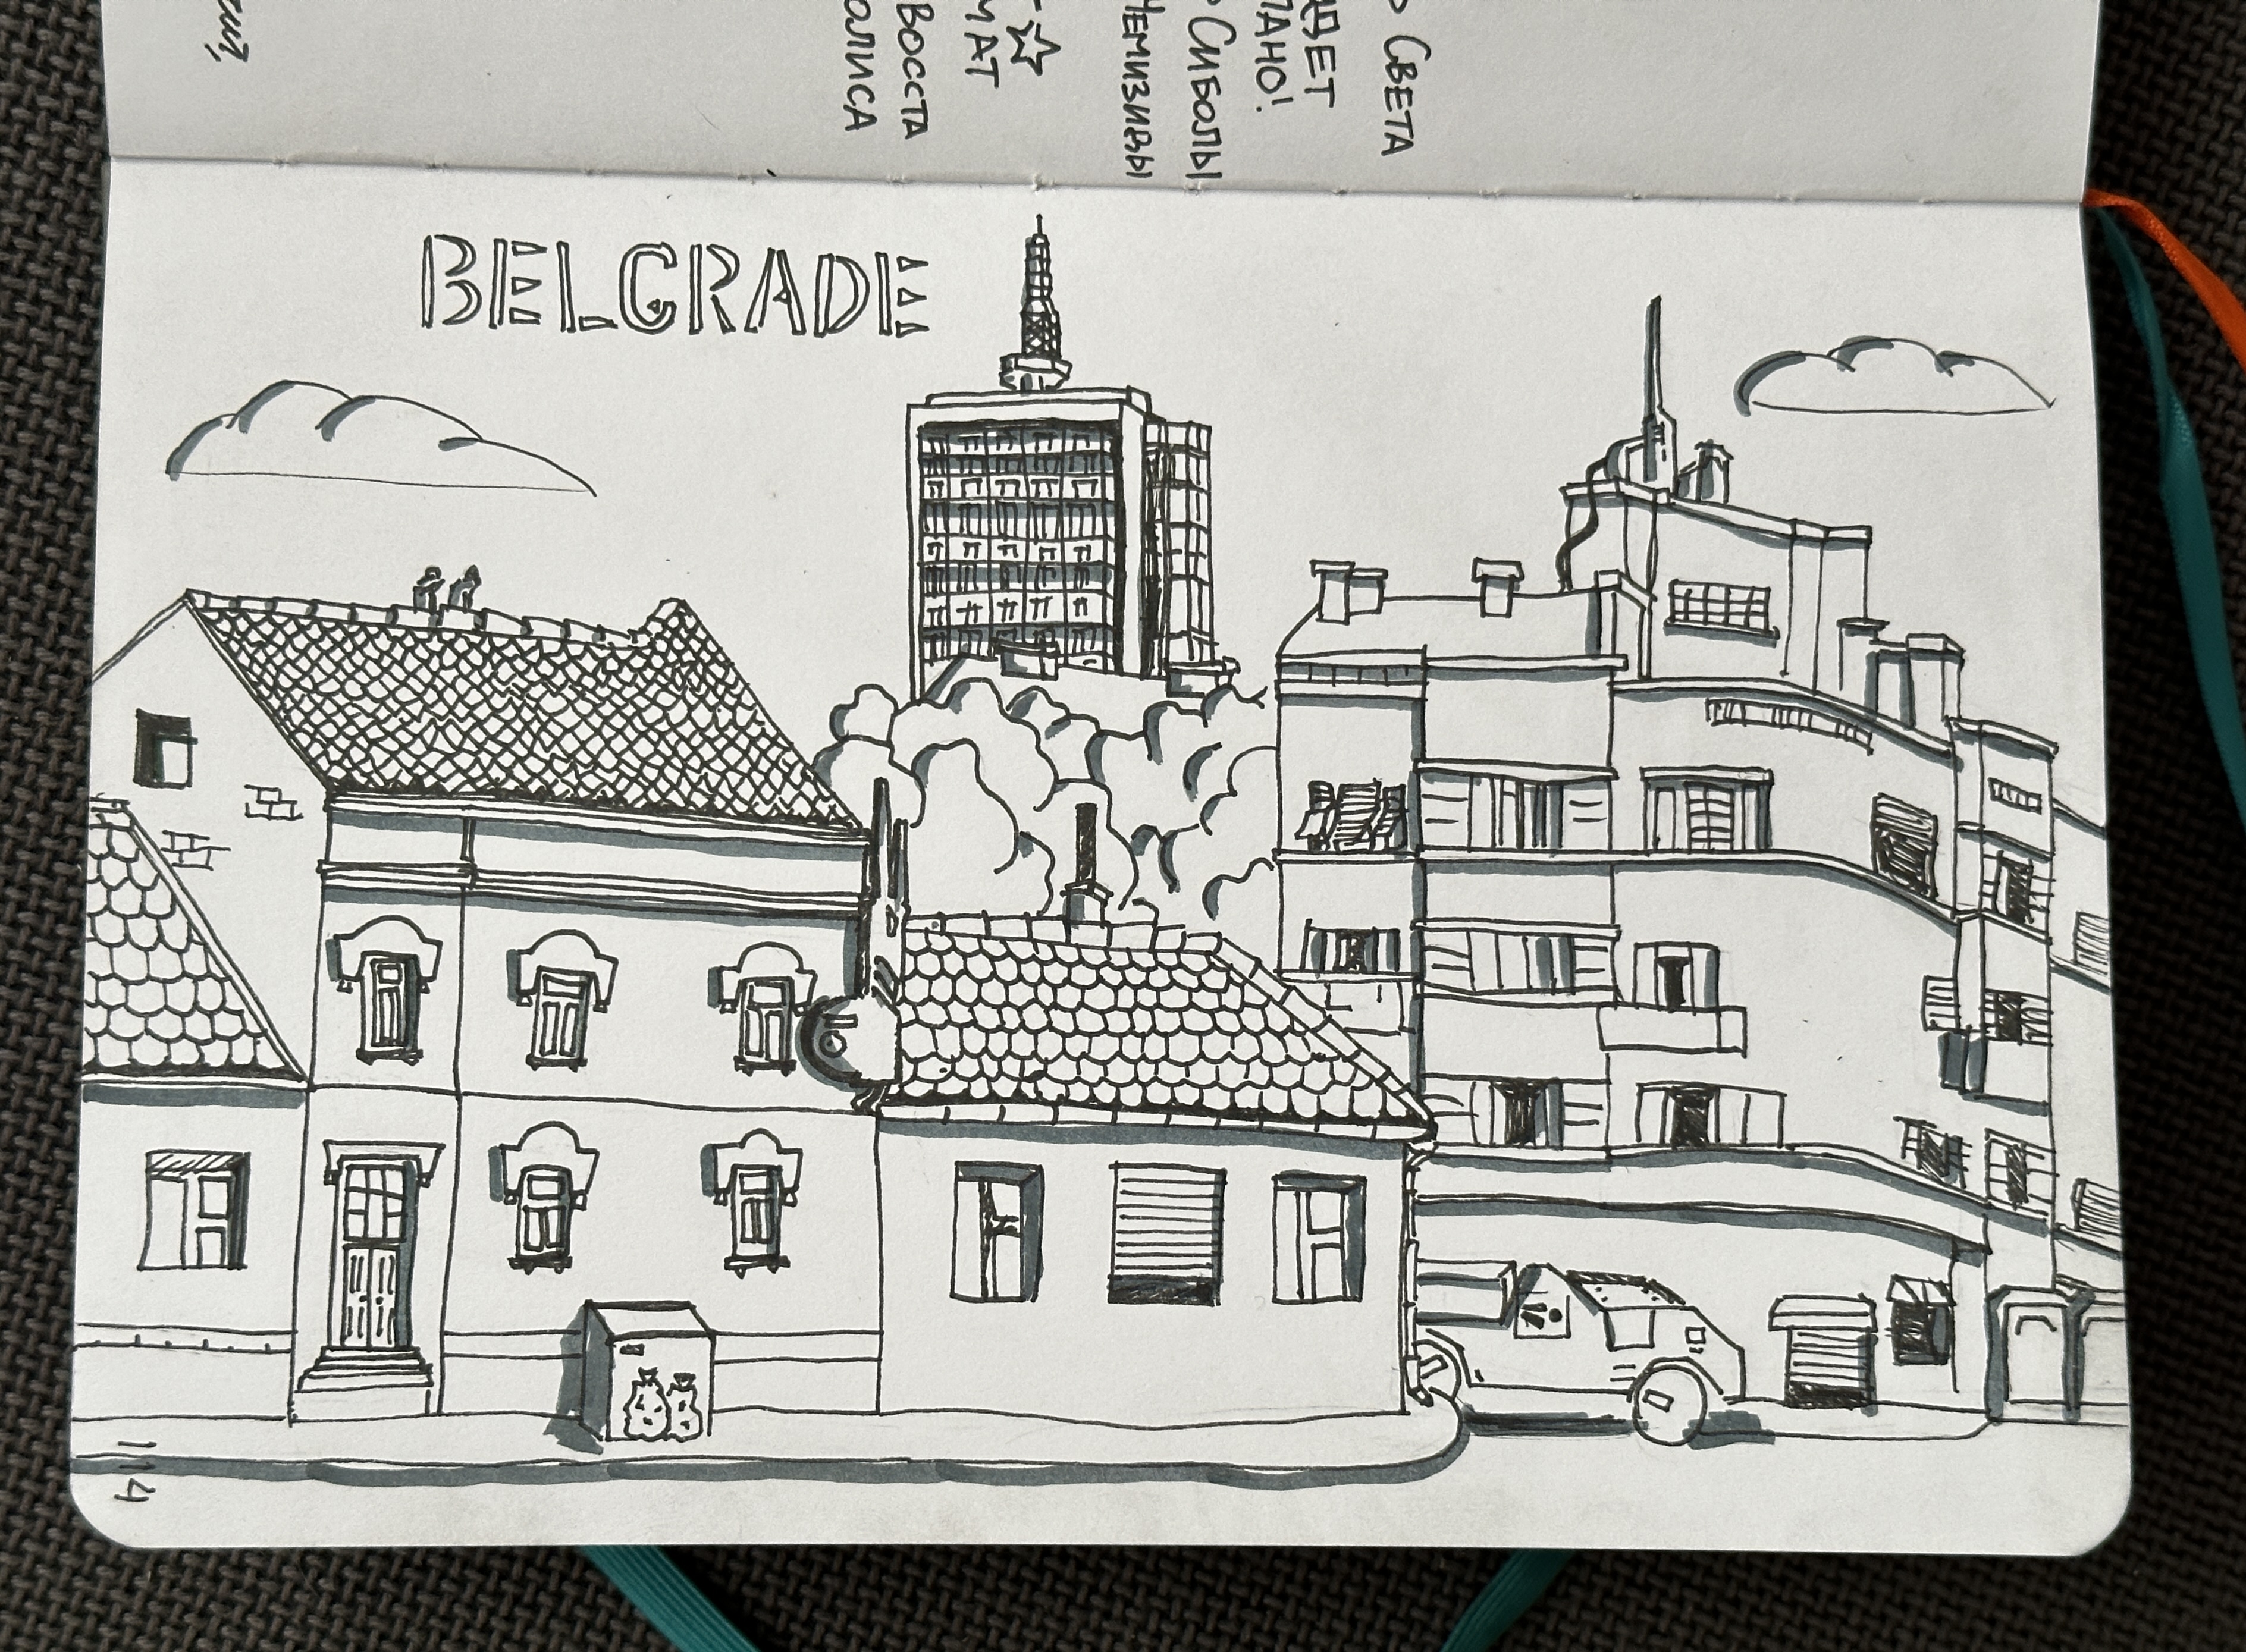 СВЕТА
ДЕТ
АНО!
СИБОЛЫ
МАТ
ВОССТА
ОЛИСА
BELGRADE
114